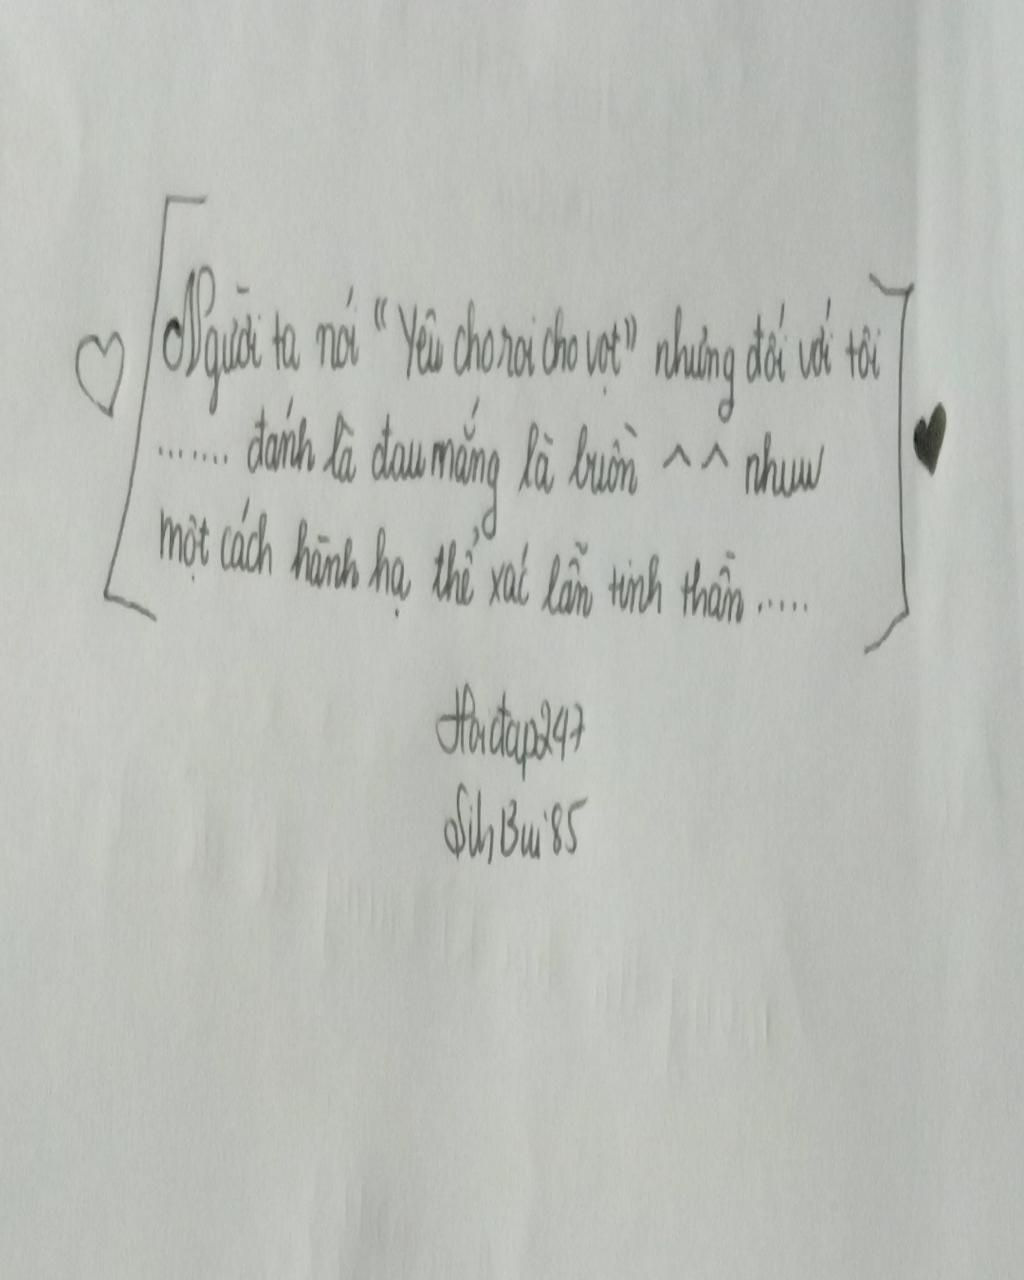 Người ta nói "Yêu cho roi cho vọt" nhưng đối với tôi
....... đánh là đau mắng là buồn ^^ như
một cách hành hạ thể xác lẫn tinh thần .....
Hoidap247
Bui'85